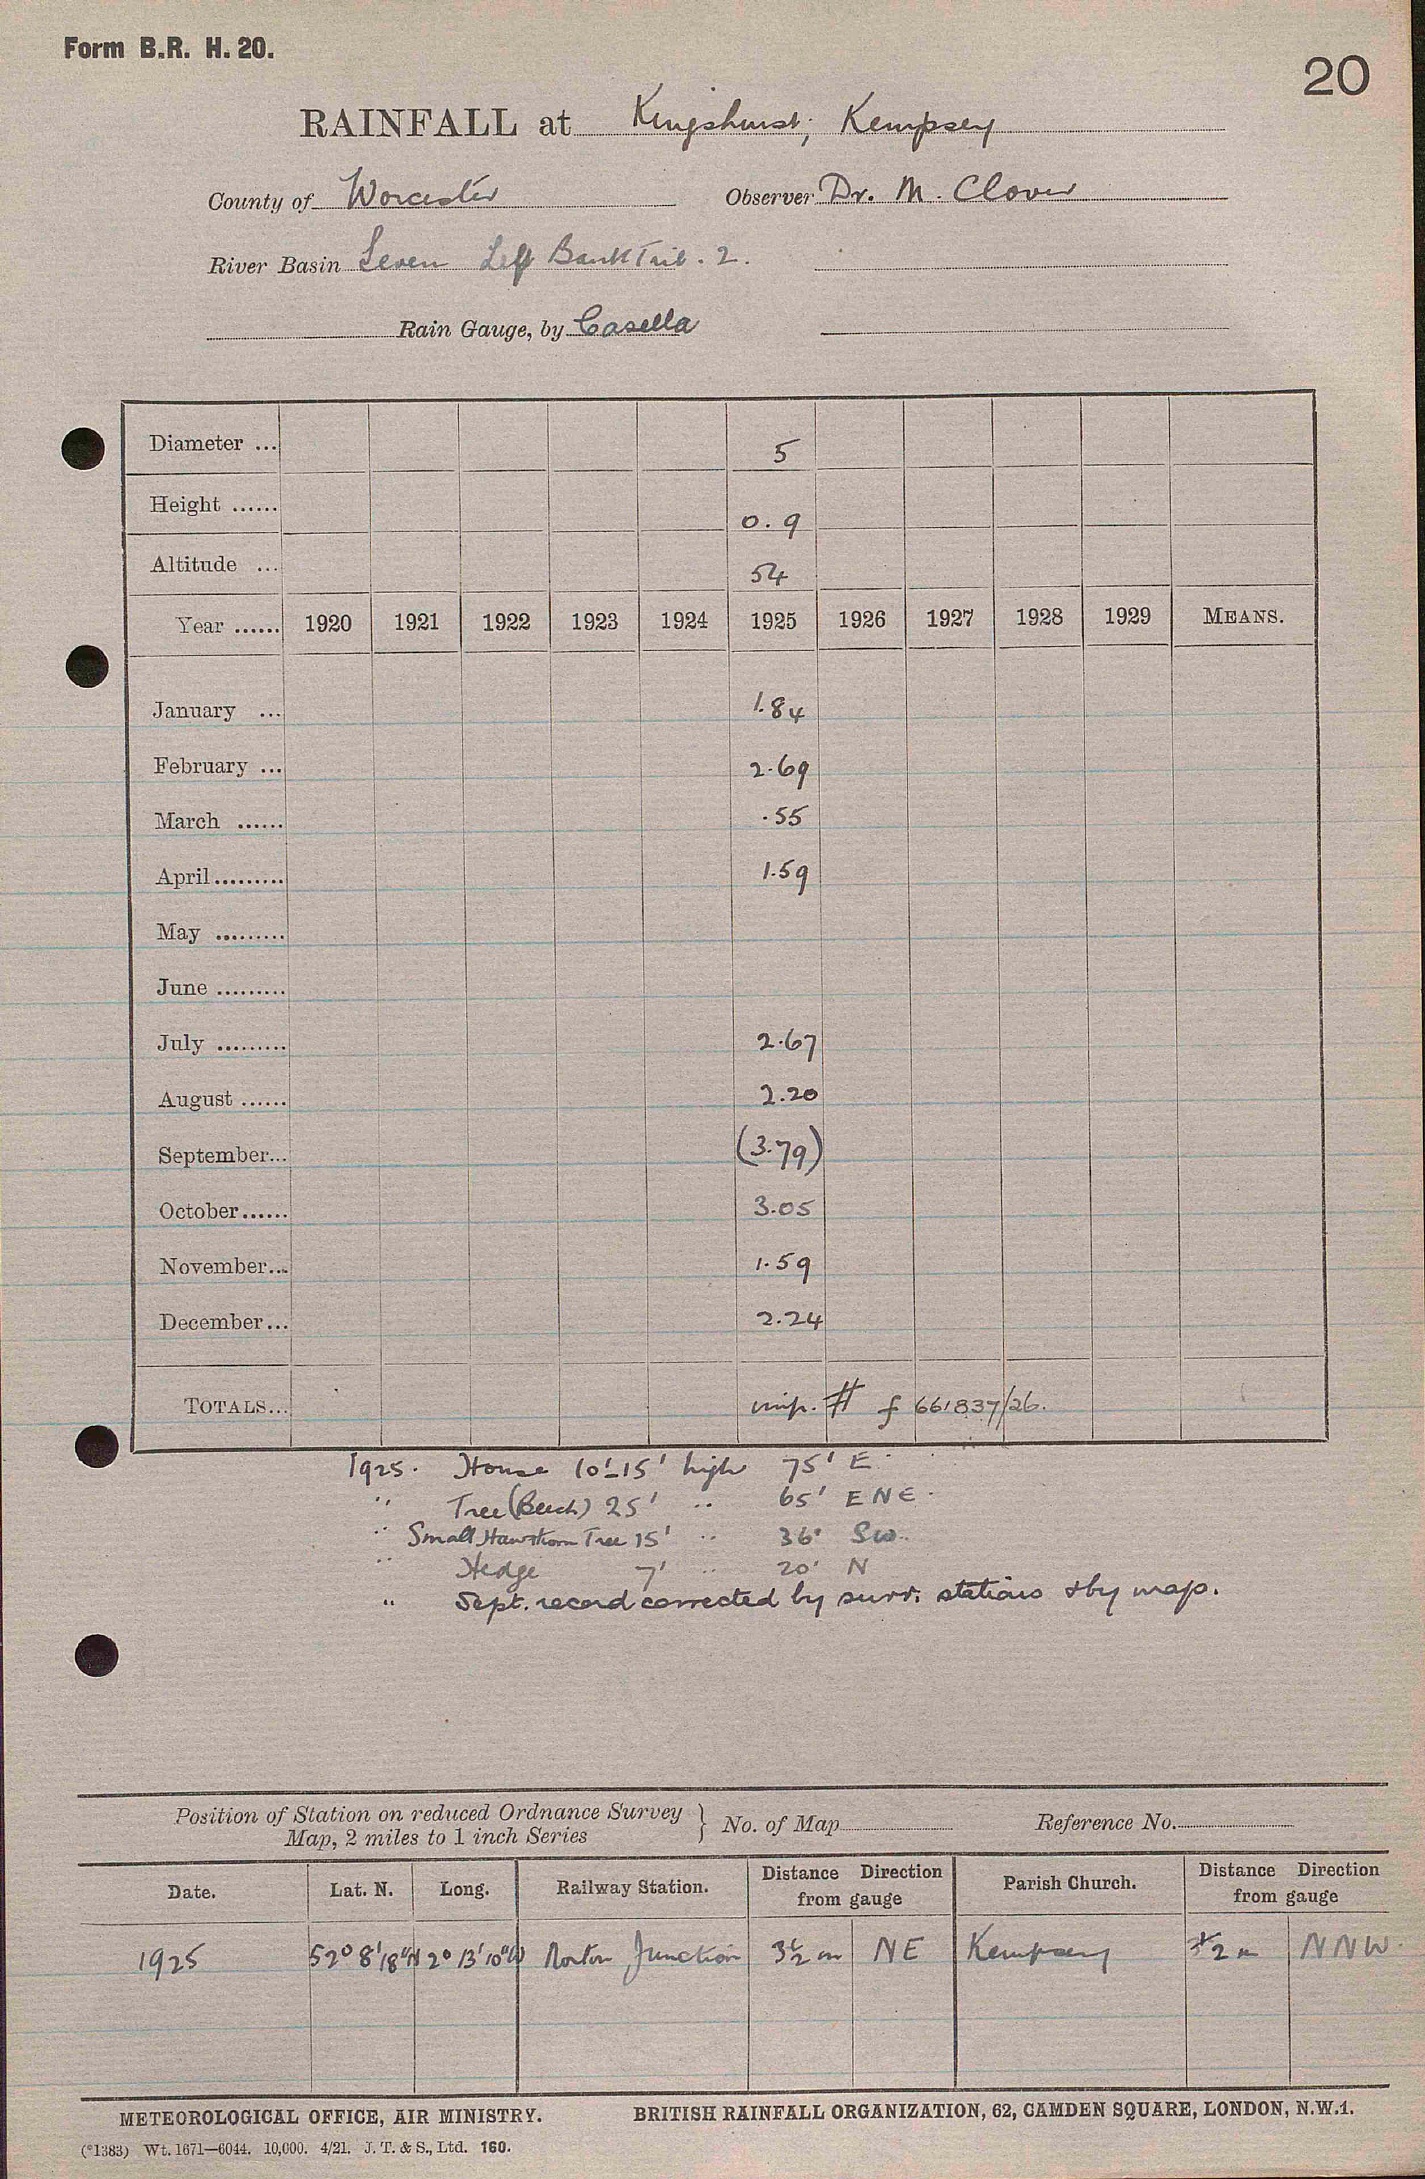 Form B.R. H. 20.
20
RAINFALL at Kingshurst, Kempsey
County of Worcester Observer Dr. M. Clover
River Basin Seven Left Bank Trib. 2.
Rain Gauge, by Casella
Diameter ... 5
Height ...... 0.9
Altitude ... 54
Year ...... 1920 1921 1922 1923 1924 1925 1926 1927 1928 1929 MEANS.
January ... 1.84
February ... 2.69
March ...... .55
April ......... 1.59
May .........
June .........
July ......... 2.67
August ...... 2.20
September... (3.79)
October ...... 3.05
November... 1.59
December... 2.24
TOTALS... # f 661837/26.
1925. House 10'-15' high 75' E.
" Tree (Beech) 25' " 65' ENE.
" Small Hawthorn Tree 15' " 36' SW.
" Hedge 7' " 20' N
" Sept. record corrected by surr. stations & by map.
Position of Station on reduced Ordnance Survey
Map, 2 miles to 1 inch Series } No. of Map Reference No.
Date. Lat. N. Long. Railway Station. Distance Direction from gauge Parish Church. Distance Direction from gauge
1925 52° 8' 18" N 2° 13' 10" W Norton Junction 3 1/2 m NE Kempsey 1/2 m NNW.
METEOROLOGICAL OFFICE, AIR MINISTRY. BRITISH RAINFALL ORGANIZATION, 62, CAMDEN SQUARE, LONDON, N.W.1.
(*1383) Wt. 1671—6044. 10,000. 4/21. J. T. & S., Ltd. 160.